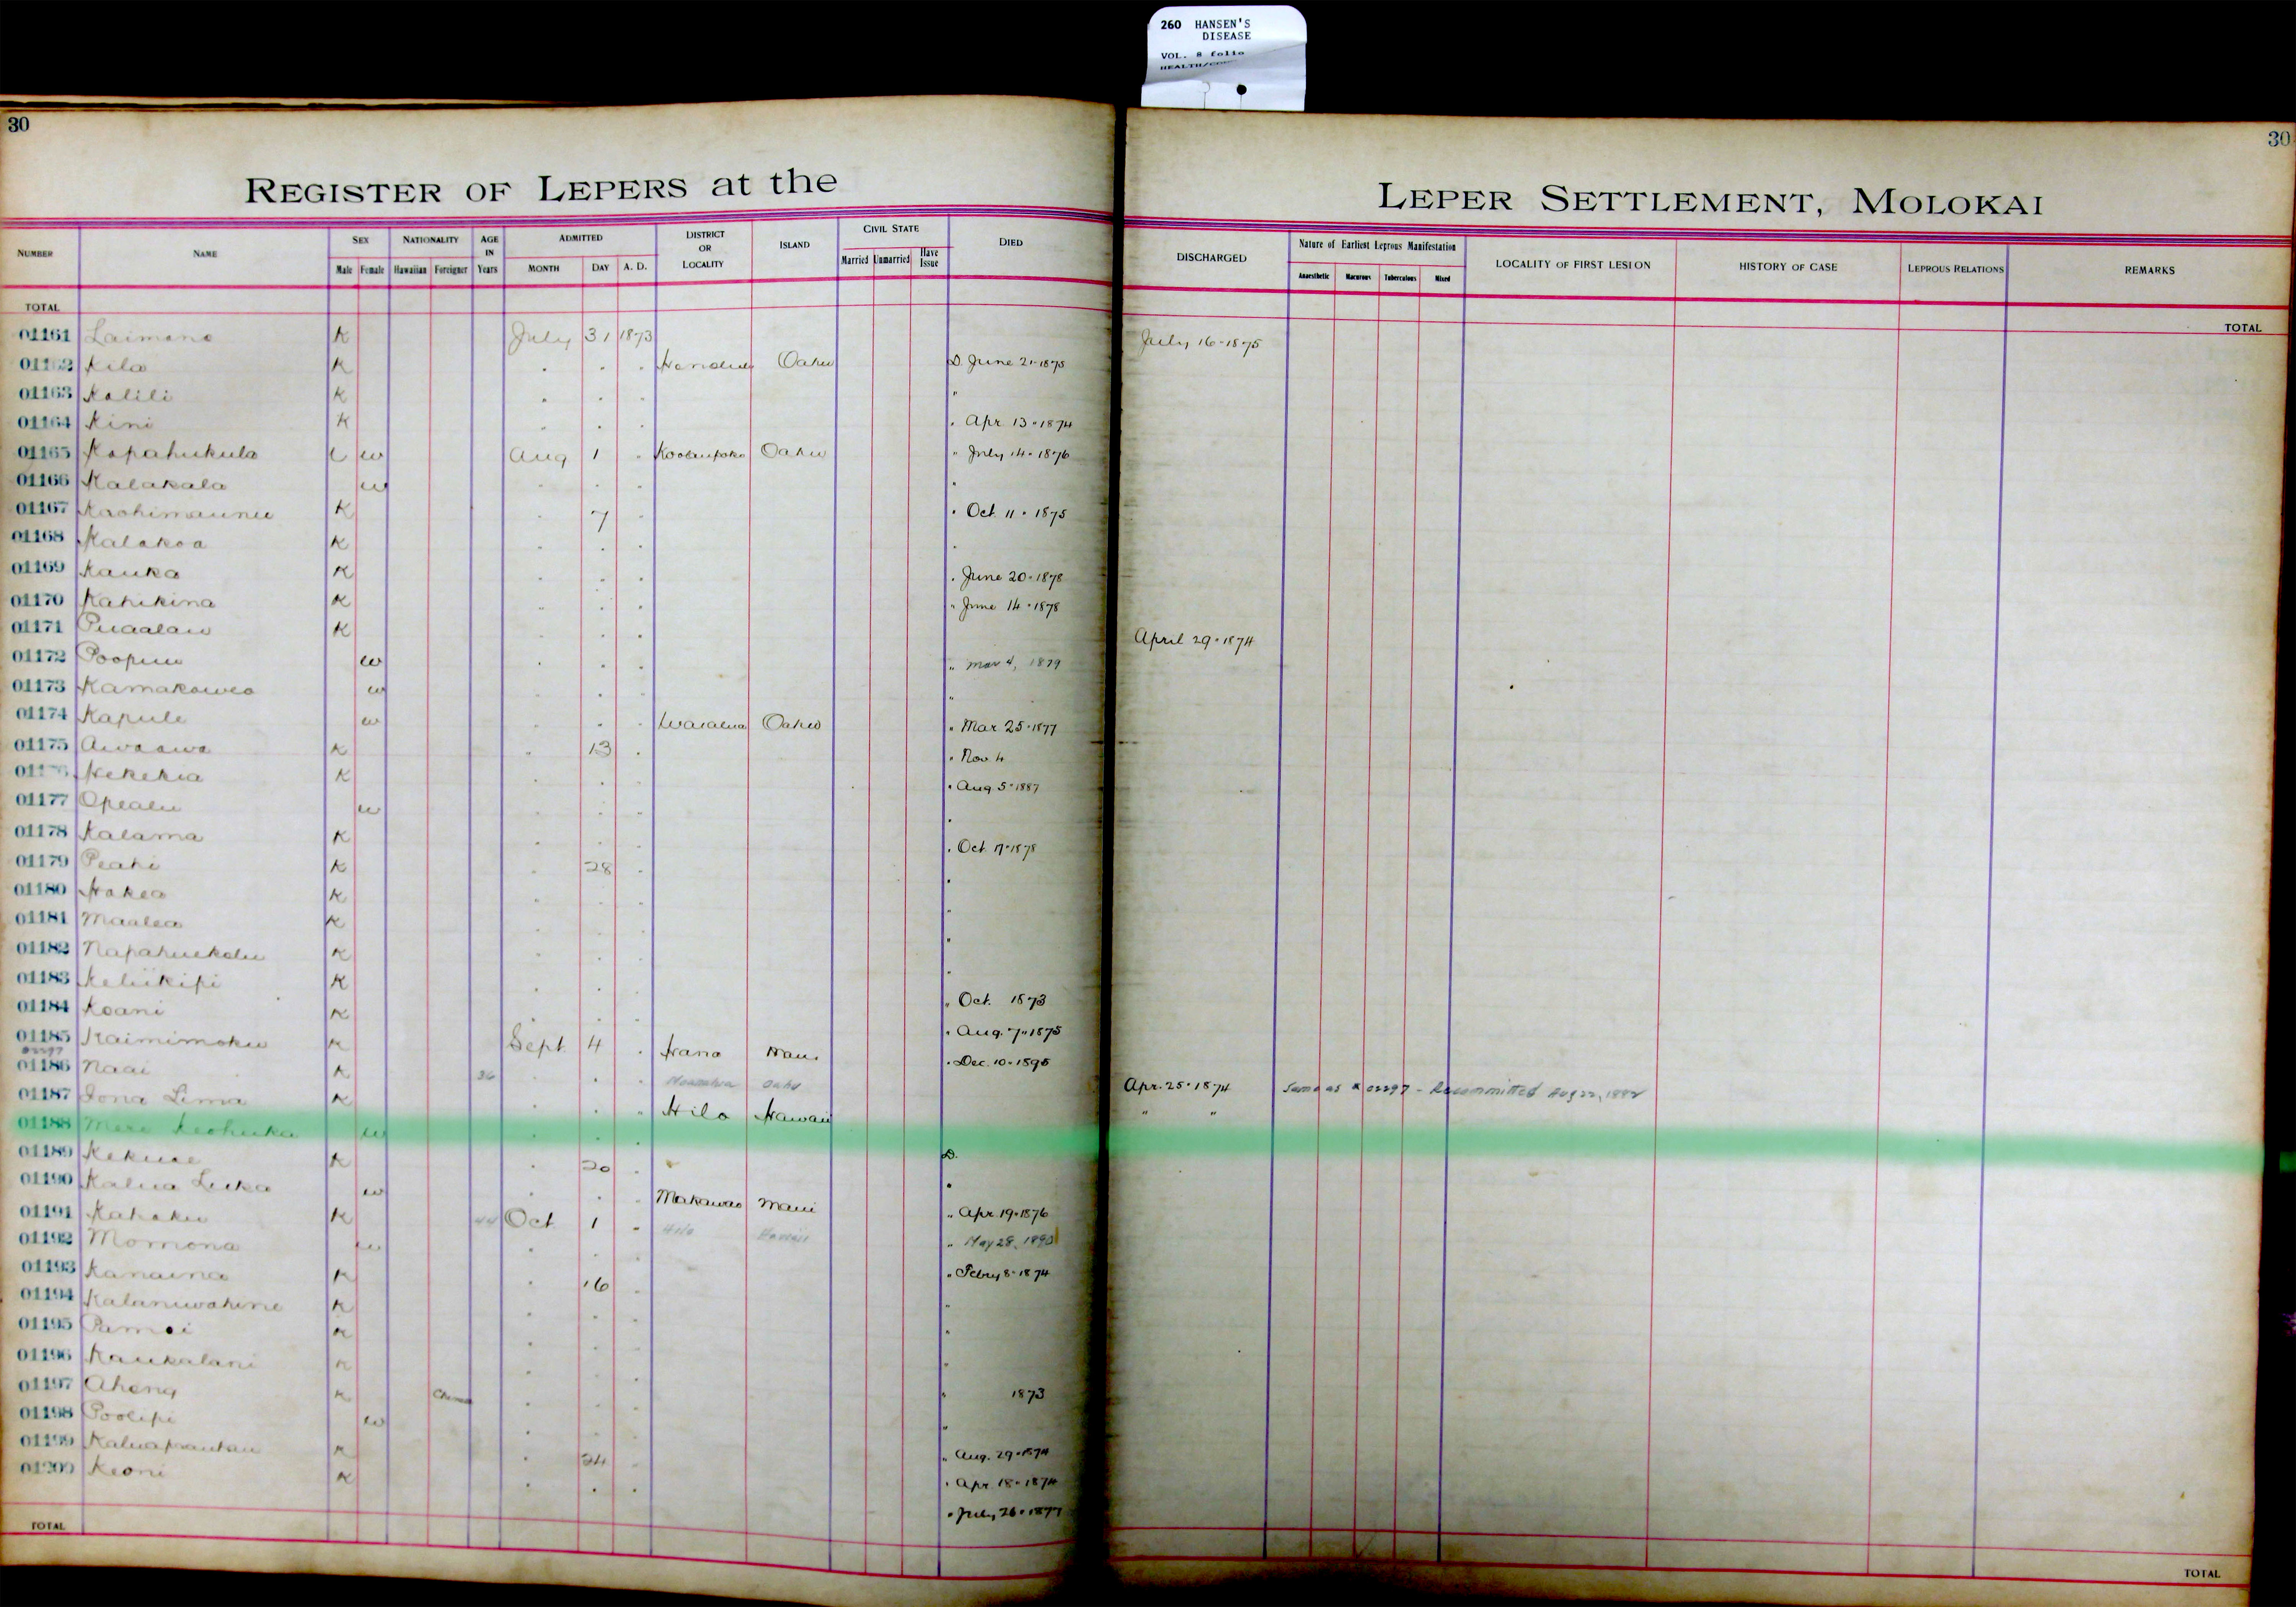 260 HANSEN'S
DISEASE
VOL. 8 folio
30
30
REGISTER OF LEPERS at the
LEPER SETTLEMENT, MOLOKAI
NUMBER NAME SEX Male Female NATIONALITY Hawaiian Foreigner AGE IN Years ADMITTED MONTH DAY A. D. DISTRICT OR LOCALITY ISLAND CIVIL STATE Married Unmarried Have Issue DIED
DISCHARGED Nature of Earliest Leprous Manifestation Anaesthetic Macurous Tuberculous Mixed LOCALITY OF FIRST LESION HISTORY OF CASE LEPROUS RELATIONS REMARKS
TOTAL
TOTAL
01161 Laimana K July 31 1873 July 16-1875
01162 Kila K " " " Honolulu Oahu D. June 21-1875
01163 Kalili K " " " "
01164 Kini K " " " " Apr. 13-1874
01165 Kapahukula w Aug 1 " Koolaupoko Oahu " July 14-1876
01166 Kalakala w " " " "
01167 K " 7 " " Oct. 11-1875
01168 Kalakoa K " " " "
01169 Kauka K " " " " June 20-1878
01170 Kahikina K " " " " June 14-1878
01171 Puaalau K " " " April 29-1874
01172 w " " " " Mar 4, 1879
01173 Kamakawea w " " " "
01174 Kapule w " " " Waialua Oahu " Mar. 25-1877
01175 Awaawa K " 13 " " Nov. 4
Hekekia K " " " " Aug 5-1887
01177 Opealu w " " " "
01178 Kalama K " " " " Oct. 17-1878
01179 Peahi K " 28 " "
01180 Hakea K " " " "
01181 Maalea K " " " "
01182 Napahuekolu K " " " "
01183 Keliikipi K " " " " Oct. 1873
01184 Koani K " " " " Aug. 7-1875
01185 Kaimimoku K Sept 4 " Hana Maui " Dec. 10-1895
01186 Naai K 36 " " " Oahu Apr. 25-1874 Same as # 02297 - Recommitted Aug 22, 1882
01187 Iona Lima K " " " Hilo Hawaii " "
01188 Mere Keohuka w " " " D.
01189 Kekuae K " 20 " "
01190 Kalua Luka w " " " Makawao Maui " Apr. 19-1876
01191 Kahaku K 44 Oct 1 " Hilo Hawaii " May 28, 1890
01192 Momona w " " " " Febry 8-1874
01193 Kanaina K " 16 " "
01194 Kalaniwahine K " " " "
01195 K " " " "
01196 Kaukalani K " " " " 1873
01197 Aheng K China " " " "
01198 Poolipi w " " " " Aug. 29-1874
01199 K " 24 " " Apr. 18-1874
01200 Keoni K " " " " July 26-1877
TOTAL
TOTAL